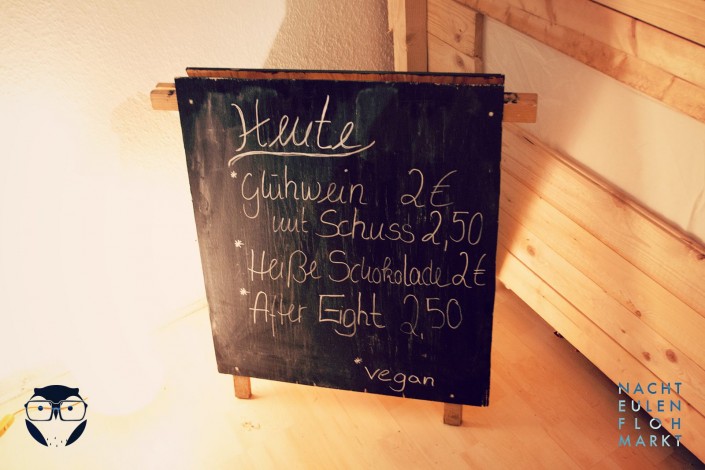 Heute
*Glühwein 2€
mit Schuss 2,50
*Heiße Schokolade 2€
*After Eight 2,50
*vegan
NACHT
EULEN
FLOH
MARKT